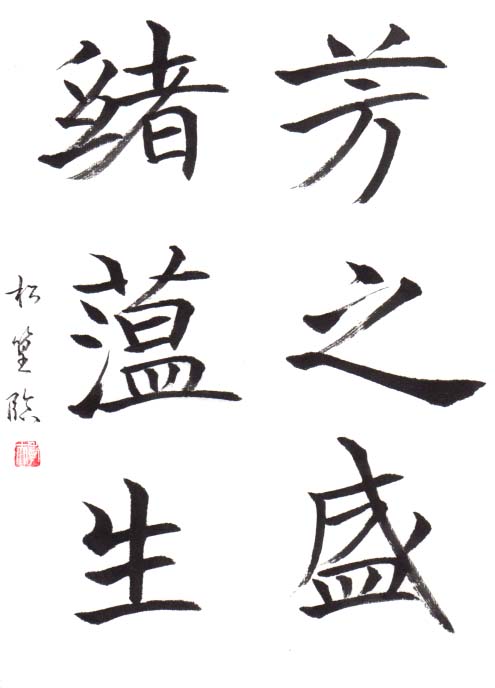 芳之盛
緒薀生
松篁臨